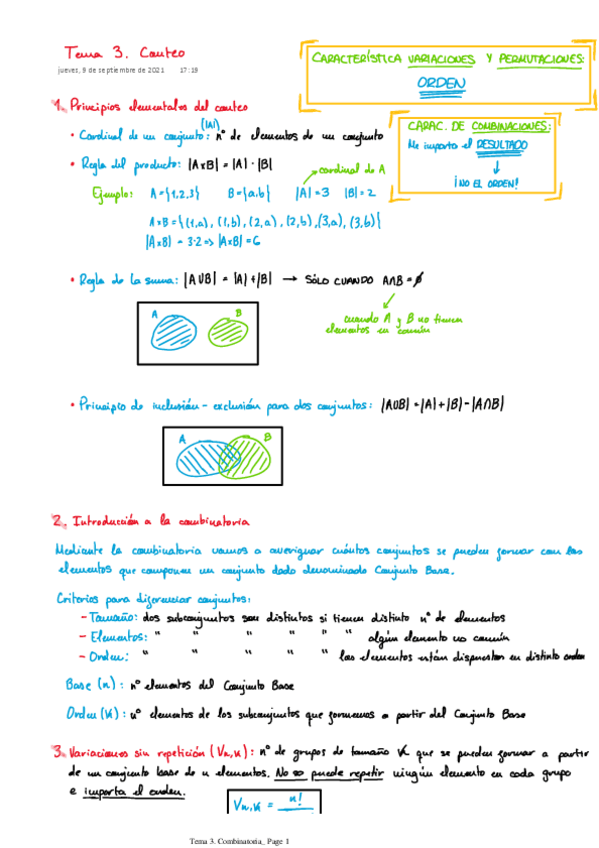 Tema 3. Conteo
jueves, 9 de septiembre de 2021 17:19
CARACTERÍSTICA VARIACIONES Y PERMUTACIONES:
ORDEN
CARAC. DE COMBINACIONES:
Me importa el RESULTADO
↓
¡NO EL ORDEN!
1. Principios elementales del conteo
(|A|)
• Cardinal de un conjunto: nº de elementos de un conjunto
• Regla del producto: |A×B| = |A| · |B|
cardinal de A
Ejemplo: A={1,2,3} B={a,b} |A|=3 |B|=2
A×B = {(1,a), (1,b), (2,a), (2,b), (3,a), (3,b)}
|A×B| = 3·2 => |A×B| = 6
• Regla de la suma: |A∪B| = |A|+|B| → SÓLO CUANDO A∩B = ∅
cuando A y B no tienen
elementos en común
A B
• Principio de inclusión - exclusión para dos conjuntos: |A∪B| = |A|+|B|-|A∩B|
A B
2. Introducción a la combinatoria
Mediante la combinatoria vamos a averiguar cuántos conjuntos se pueden formar con los
elementos que componen un conjunto dado denominado Conjunto Base.
Criterios para diferenciar conjuntos:
- Tamaño: dos subconjuntos son distintos si tienen distinto nº de elementos
- Elementos: " " " " " " algún elemento no común
- Orden: " " " " " los elementos están dispuestos en distinto orden
Base (n): nº elementos del Conjunto Base
Orden (K): nº elementos de los subconjuntos que formemos a partir del Conjunto Base
3. Variaciones sin repetición (Vn,K): nº de grupos de tamaño K que se pueden formar a partir
de un conjunto base de n elementos. No se puede repetir ningún elemento en cada grupo
e importa el orden.
Vn,K = n!
Tema 3. Combinatoria_ Page 1